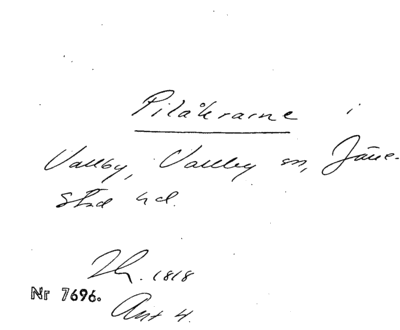 Pilåkrarne i
Vallby, Vallby sn, Järre-
stad hd.
Jh. 1818
Nr 7696.
Akt 4.